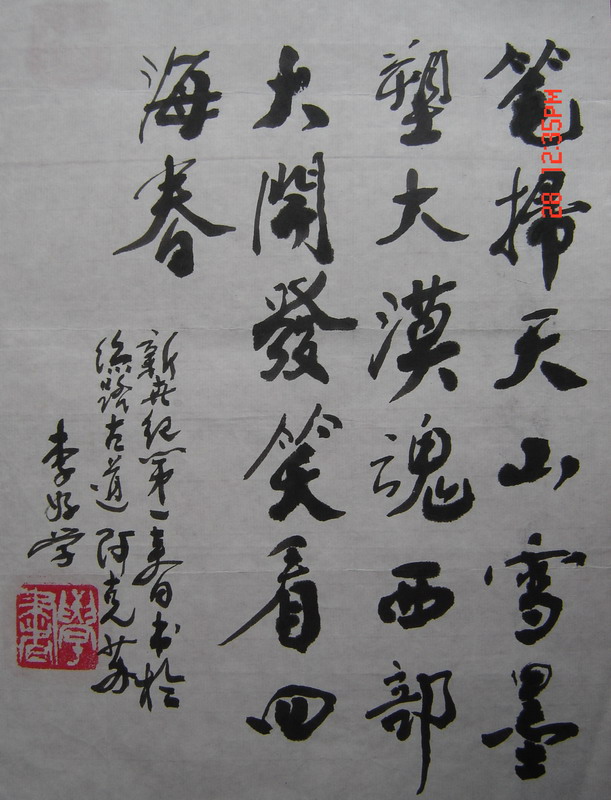 笔掃天山雪墨
塑大漠魂西部
大開發笑看四
海春
新世紀第一春日书於
絲路古道阿克苏
李好学
28 12:35PM